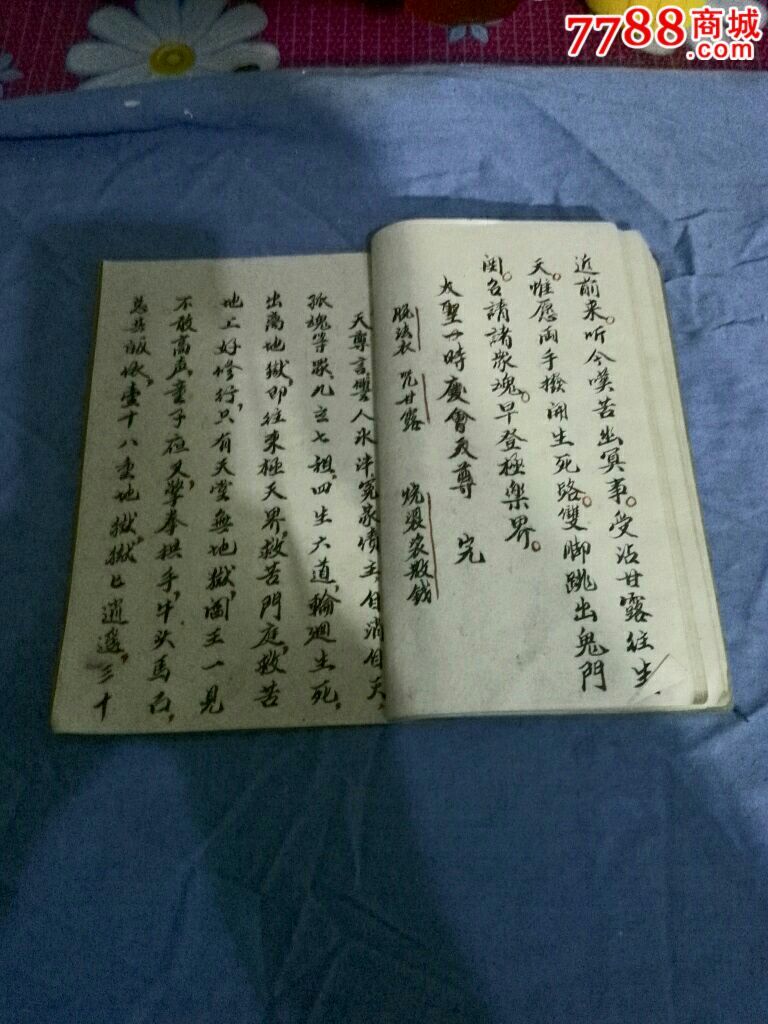 7788商城
.com
近前来。听今嘆苦幽冥事。受沾甘露往生
天。惟愿両手撥開生死路。雙脚跳出鬼門
関。召請諸衆魂。早登極樂界。
大聖一時慶會天尊 完
脱法衣 咒甘露 燒退袈散錢
天尊言讐人永泮冤家債主自消自天,
孤魂等衆,九玄七祖,四生六道,輪廻生死,
出离地獄,即往東極天界,救苦門庭,救苦
地上好修行,只有天堂無地獄,閻王一見
不敢高声,童子夜叉,擎拳拱手,牛头馬面,
总皆皈依,壹十八重地獄,獄匕逍遥,三十